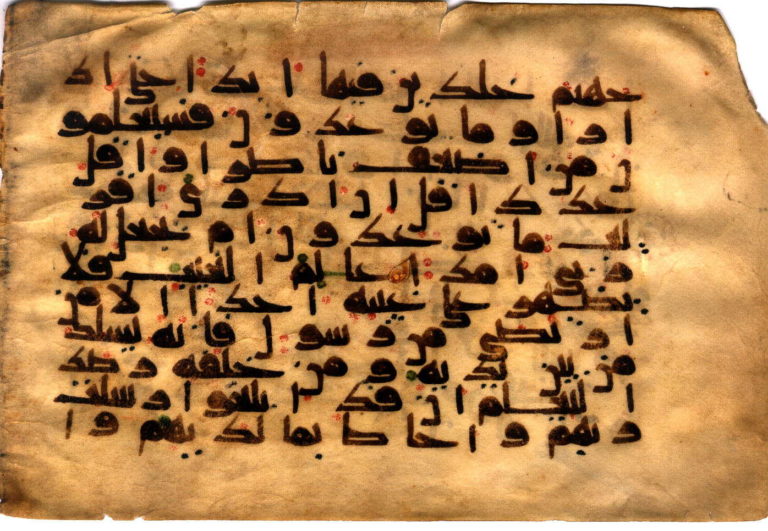 جهنم خلدين فيها ابدا حتى اذ
ا راوا ما يوعدون فسيعلمو
ن من اضعف ناصرا واقل
عددا قل ان ادرى اقر
يب ما توعدون ام يجعل له
ربى امدا علم الغيب فلا
يظهر على غيبه احدا الا من
ارتضى من رسول فانه يسلك
من بين يديه ومن خلفه رصد
ا ليعلم ان قد ابلغوا رسلت
ربهم واحاط بما لديهم وا